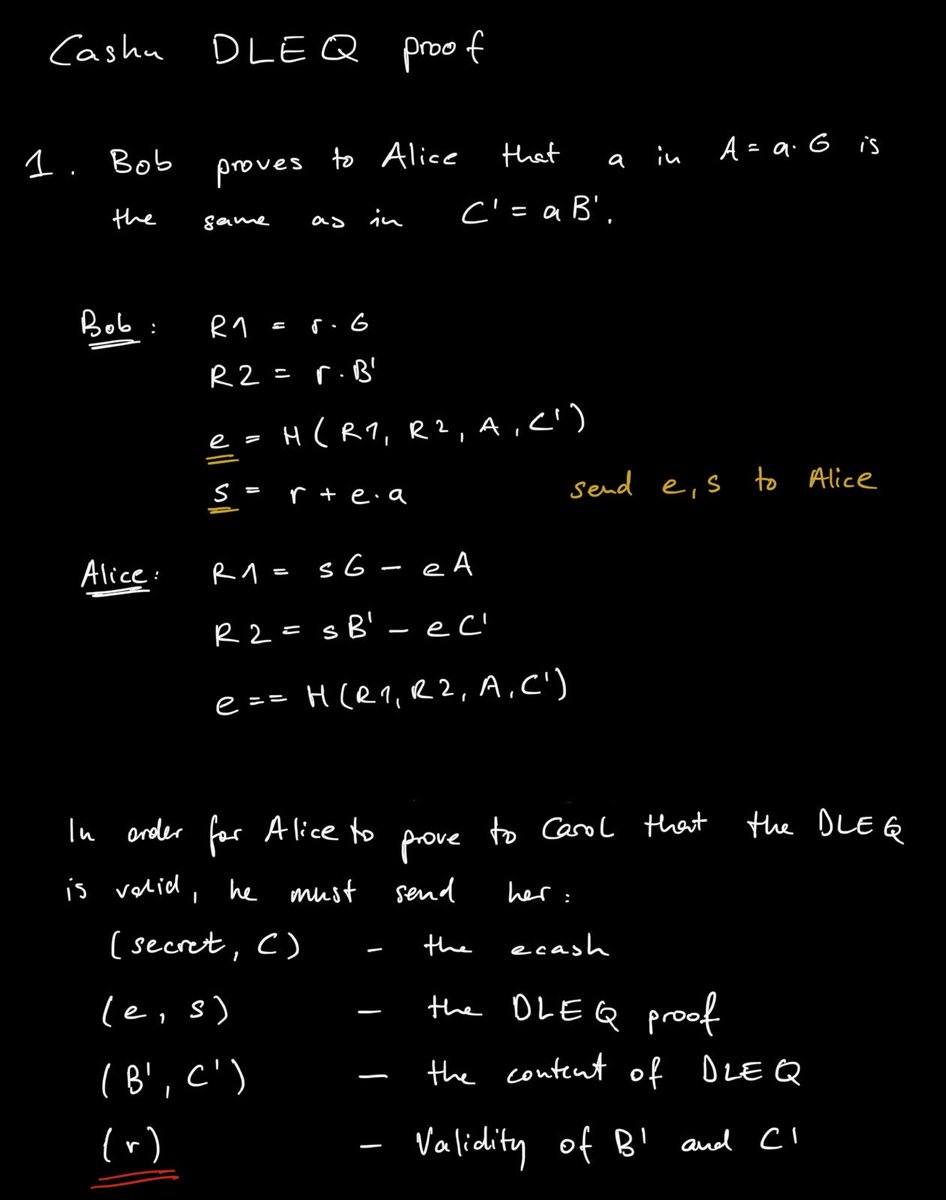 Cashu DLEQ proof
1. Bob proves to Alice that a in A = a·G is
the same as in C' = a B'.
Bob: R1 = r·G
R2 = r·B'
e = H(R1, R2, A, C')
s = r + e·a send e, s to Alice
Alice: R1 = sG - eA
R2 = sB' - eC'
e == H(R1, R2, A, C')
In order for Alice to prove to Carol that the DLEQ
is valid, he must send her:
(secret, C) - the ecash
(e, s) - the DLEQ proof
(B', C') - the content of DLEQ
(r) - Validity of B' and C'